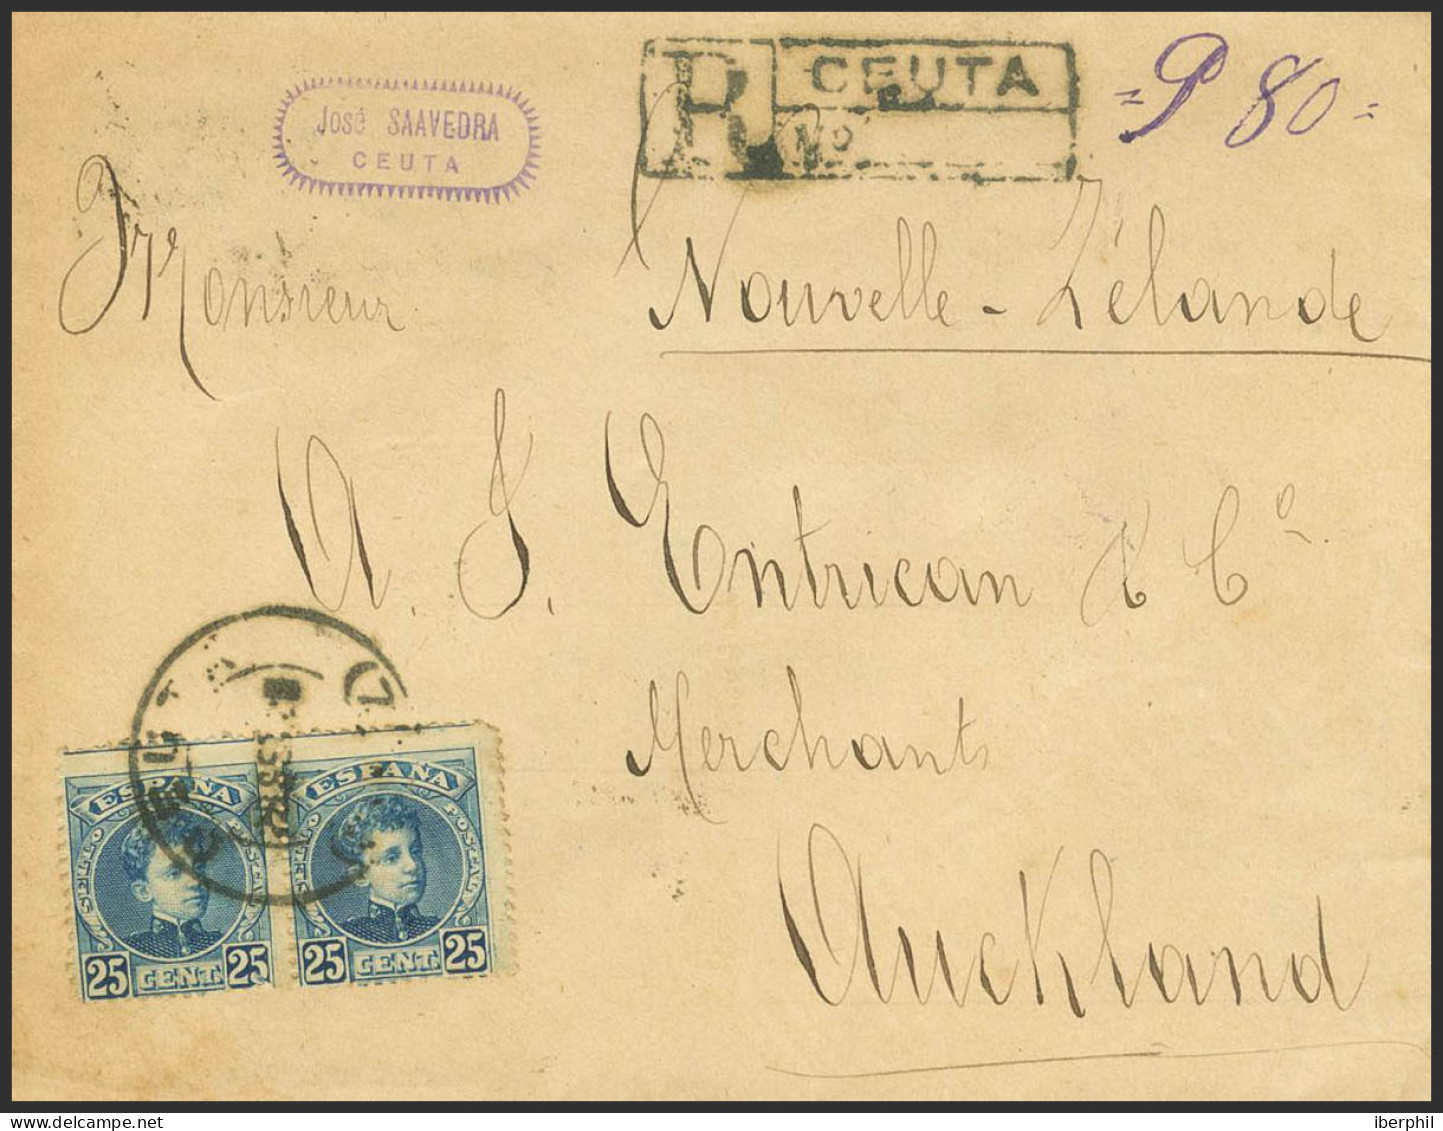 José SAAVEDRA
CEUTA
R CEUTA
No
=P 80=
Monsieur
Nouvelle-Zélande
A. S. Entrican & Cº.
Merchants
Auckland
CEUTA
ESPAÑA
SELLO POSTAL
25 CENT. 25
ESPAÑA
SELLO POSTAL
25 CENT. 25
iberphil